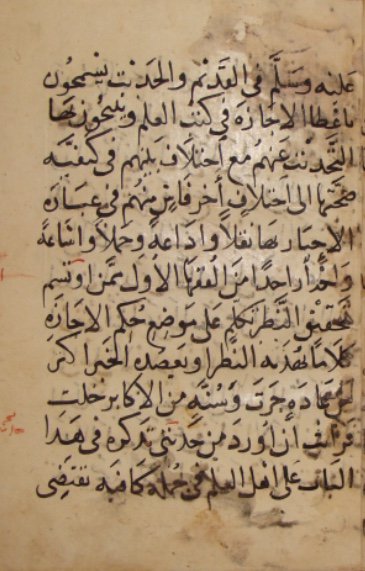 عليه وسلم في القديم والحديث يسمحون
باعطا الاجازة في كتب العلم ويبيحون بها
التحديث عنهم مع اختلاف بينهم في كيفية
صحتها الى اختلاف اخر فاش منهم في عبارة
الاخبار بها نقلا واداعة وحملا واشاعة
واحدا من الفقها الاول ممن اوتسم
بتحقيق النظر تكلم على موضع حكم الاجازة
كلاما يهديه النظر او يعضده الخبر اكثر
من عادة جرت وسنة من الاكابر خلت
فرايت ان اورد من حديثي بذكره في هذا
الباب على اهل العلم في جملة كافية تقتضي